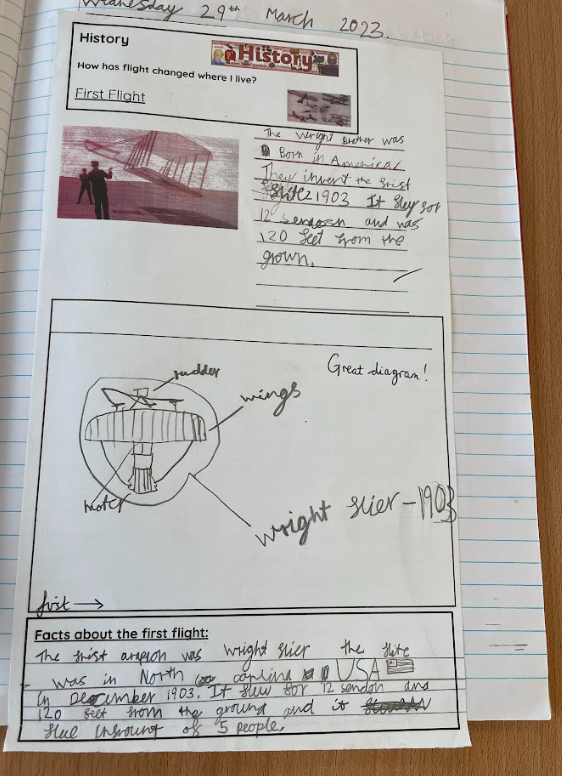 Wednesday 29th March 2023.
History
History
How has flight changed where I live?
First Flight
The wright Brother was
Born in America/
They invent the frist
1903 It fley for
12 sendosn and was
120 feet from the
grown.
Great diagram!
rudder
wings
moter
wright flier - 1903
fist →
Facts about the first flight:
The frist was wright flier the flite
was in North USA
in December 1903. It flew for 12 sendon and
120 feet from the ground and it
flue of 5 people.